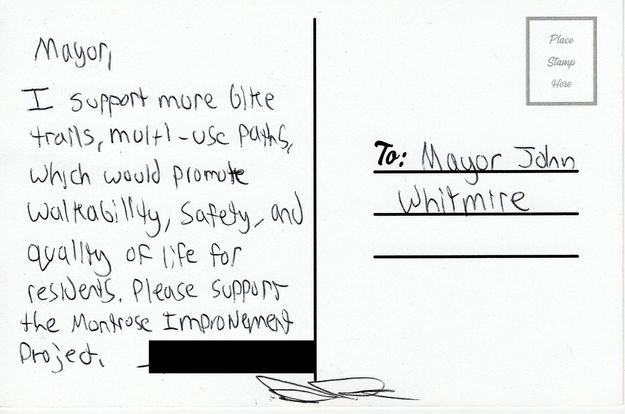 Mayor,
I support more bike
trails, multi-use paths,
which would promote
walkability, safety, and
quality of life for
residents. Please support
the Montrose Improvement
Project.
Place
Stamp
Here
To: Mayor John
Whitmire